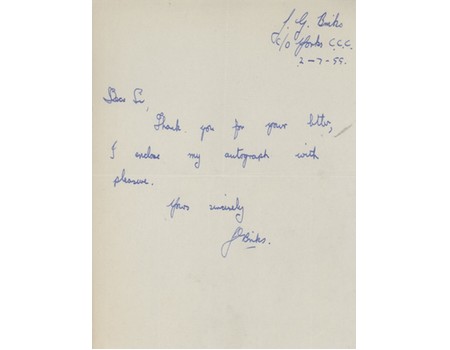 J. G. Binks
c/o Yorks C.C.C.
2-7-55.
Dear Sir,
Thank you for your letter,
I enclose my autograph with
pleasure.
Yours sincerely
J G Binks.